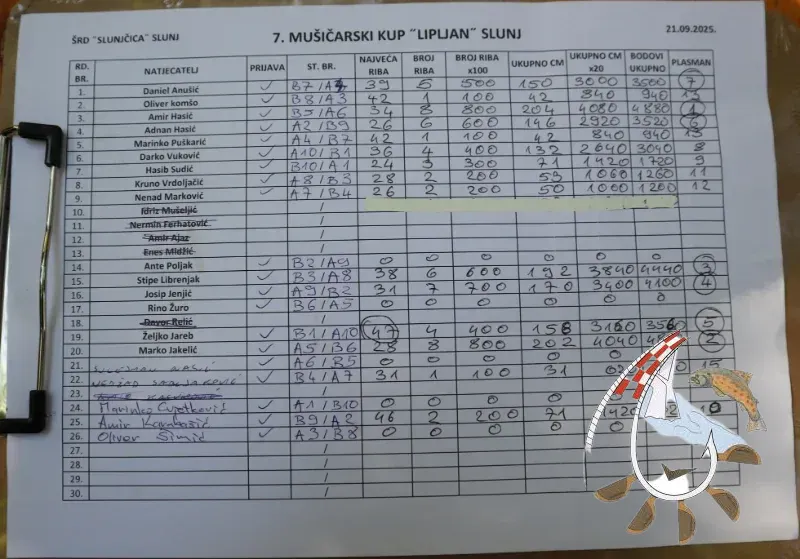 ŠRD ˝SLUNJČICA˝ SLUNJ 7. MUŠIČARSKI KUP ˝LIPLJAN˝ SLUNJ 21.09.2025.
RD. BR. NATJECATELJ PRIJAVA ST. BR. NAJVEĆA RIBA BROJ RIBA BROJ RIBA x100 UKUPNO CM UKUPNO CM x20 BODOVI UKUPNO PLASMAN
1. Daniel Anušić ✓ B7/A 39 5 500 150 3000 3500 7
2. Oliver komšo ✓ B8/A3 42 1 100 42 840 940 13
3. Amir Hasić ✓ B5/A6 34 8 800 204 4080 4880 1
4. Adnan Hasić ✓ A2/B9 26 6 600 146 2920 3520 6
5. Marinko Puškarić ✓ A4/B7 42 1 100 42 840 940 13
6. Darko Vuković ✓ A10/B1 36 4 400 132 2640 3040 8
7. Hasib Sudić ✓ B10/A1 24 3 300 71 1420 1720 9
8. Kruno Vrdoljačić ✓ A8/B3 28 2 200 53 1060 1260 11
9. Nenad Marković ✓ A7/B4 26 2 200 50 1000 1200 12
10. Idriz Mušeljić /
11. Nermin Ferhatović /
12. Amir Ajaz /
13. Enes Midžić /
14. Ante Poljak ✓ B2/A9 0 0 0 0 0 0
15. Stipe Librenjak ✓ B3/A8 38 6 600 192 3840 4440 3
16. Josip Jenjić ✓ A9/B2 31 7 700 170 3400 4100 4
17. Rino Žuro ✓ B6/A5 0 0 0 0 0 0
18. Davor Relić /
19. Željko Jareb ✓ B1/A10 47 4 400 158 3160 3560 5
20. Marko Jakelić ✓ A5/B6 28 8 800 202 4040 2
21. ✓ A6/B5 0 0 0 0 0
22. ✓ B4/A7 31 1 100 31 15
23. /
24. Marinko Cvjetković ✓ A1/B10 0 0 0 0
25. Amir ✓ B9/A2 46 2 200 71 1420 10
26. Oliver Simić ✓ A3/B8 0 0 0 0
27. /
28. /
29. /
30. /